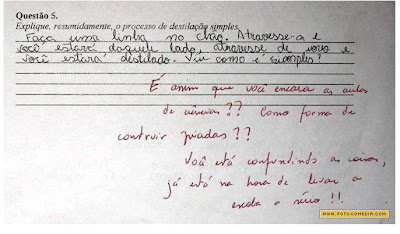 Questão 5.
Explique, resumidamente, o processo de destilação simples.
Faça uma linha no chão. Atravesse-a e
você estará daquele lado, atravesse de novo e
você estará destilado. Viu como é simples?
É assim que você encara as aulas
de ciências?? Como forma de
contruir piadas??
Você está confundindo as coisas,
já está na hora de levar a
escola a sério!!
WWW.FOTOCOMEDIA.COM